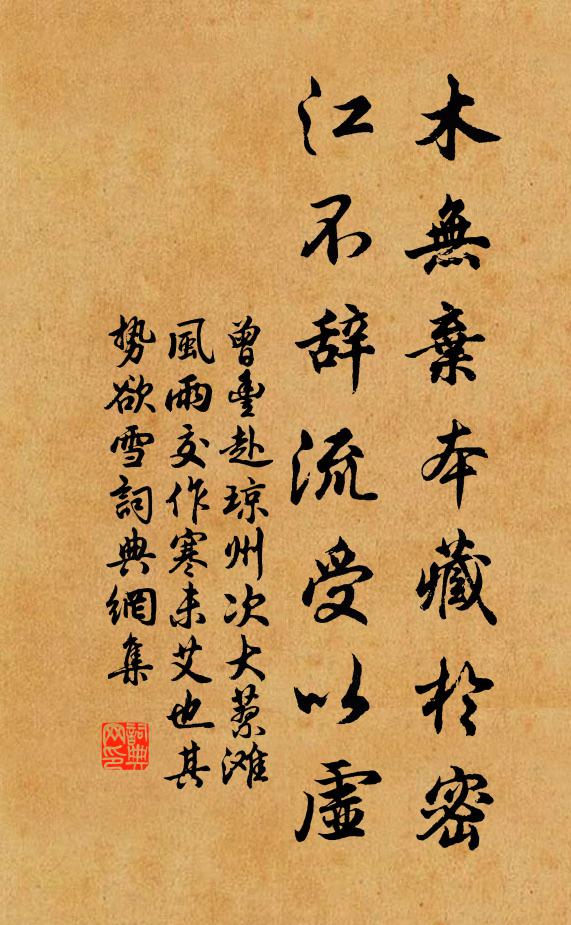 木無棄本藏於密
江不辞流受以虛
曾豐赴琼州次大蔡滩
風雨交作寒未艾也其
势欲雪詞典網集
詞典網印